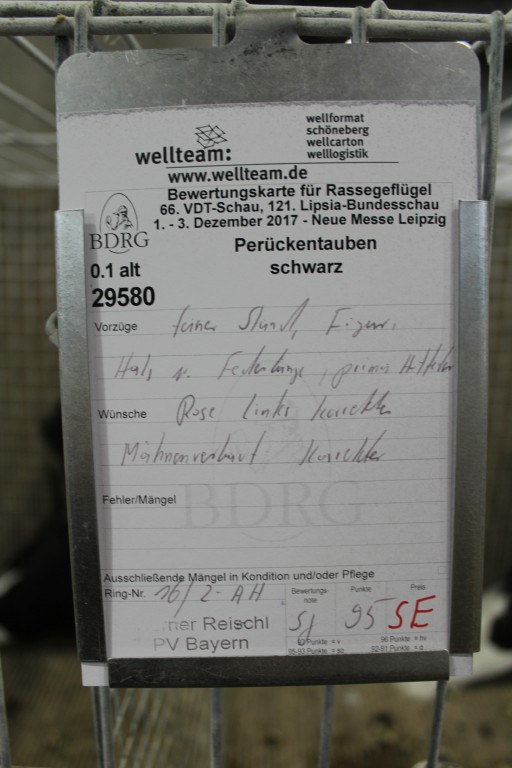 wellteam:
wellformat
schöneberg
wellcarton
welllogistik
www.wellteam.de
Bewertungskarte für Rassegeflügel
66. VDT-Schau, 121. Lipsia-Bundesschau
1. - 3. Dezember 2017 - Neue Messe Leipzig
BDRG
Perückentauben
0.1 alt
schwarz
29580
Vorzüge feiner Stand, Figur,
Hals u. Federlänge, prima
Wünsche Rose links korrekter
Mähnenverlauf korrekter
Fehler/Mängel
BDRG
Ausschließende Mängel in Kondition und/oder Pflege
Ring-Nr. 16/2-AH
Bewertungs-note Punkte Preis
Reischl
sg 95 SE
PV Bayern
96 Punkte = hv